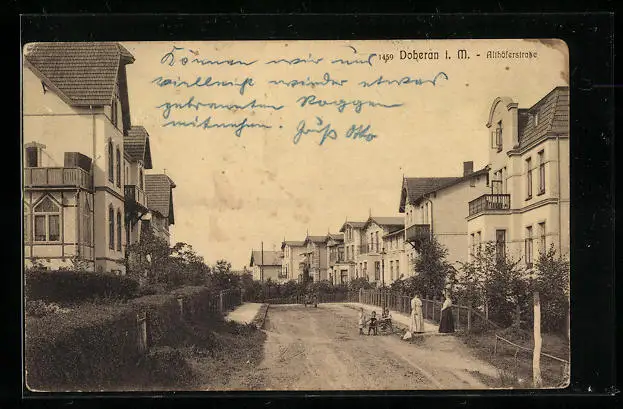 1459 Doberan i. M. - Althöferstraße
Können wir uns
vielleicht wieder etwas
gebrannten Roggen
mitnehmen. Gruß Otto